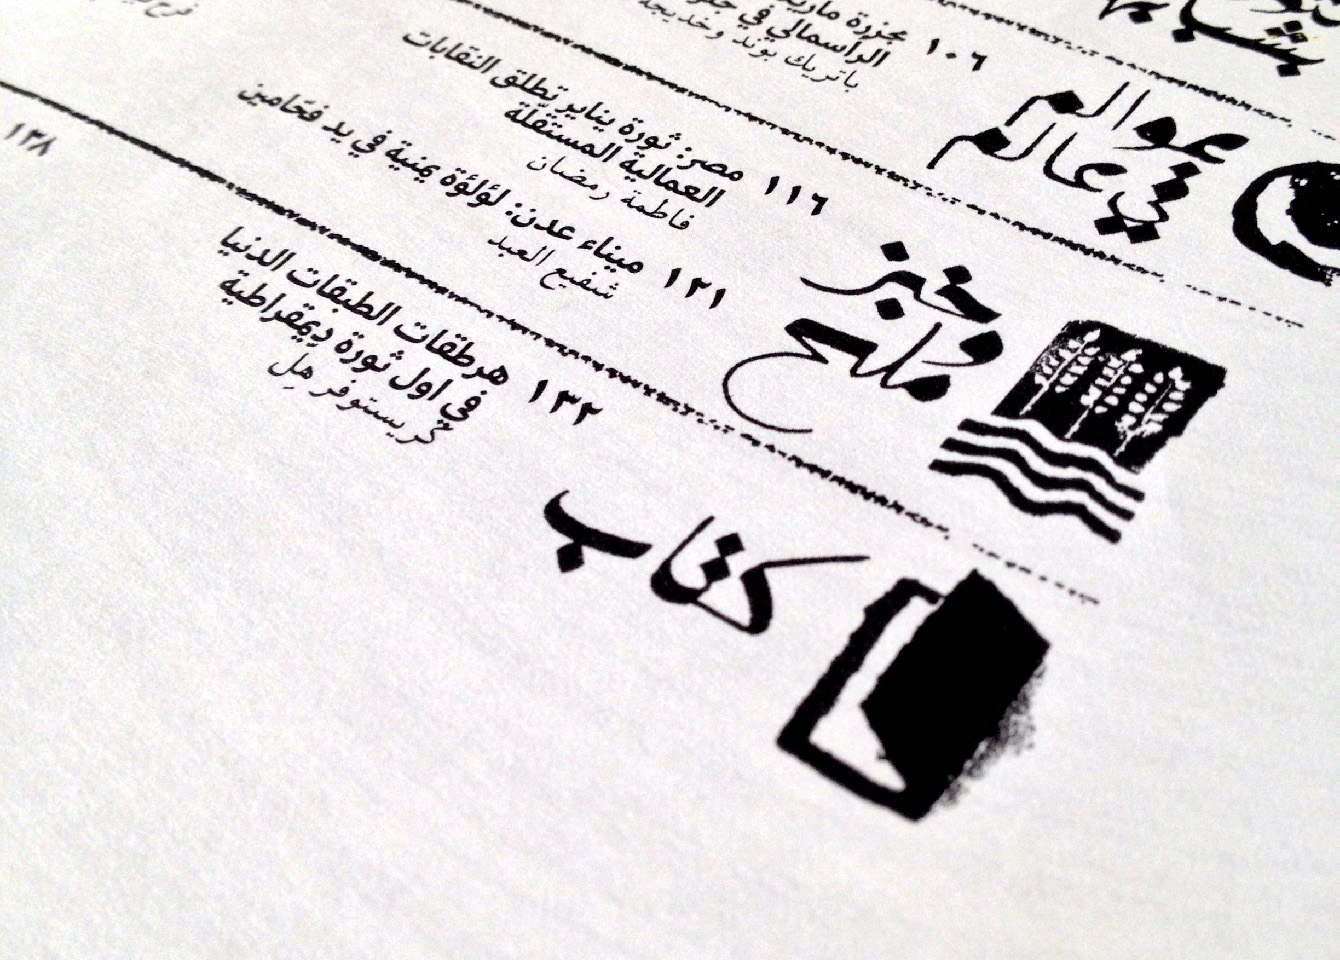 عوالم
في عالم
١٠٦
مجزرة
الرأسمالي في
باتريك بوند وخديجة
خبز
وملح
١١٦ مصر: ثورة يناير تطلق النقابات
العمالية المستقلة
فاطمة رمضان
١٢١ ميناء عدن: لؤلؤة يمنية في يد فحّامين
شفيع العبد
كتاب
١٣٢ هرطقات الطبقات الدنيا
في اول ثورة ديمقراطية
كريستوفر هِل
١٣٨